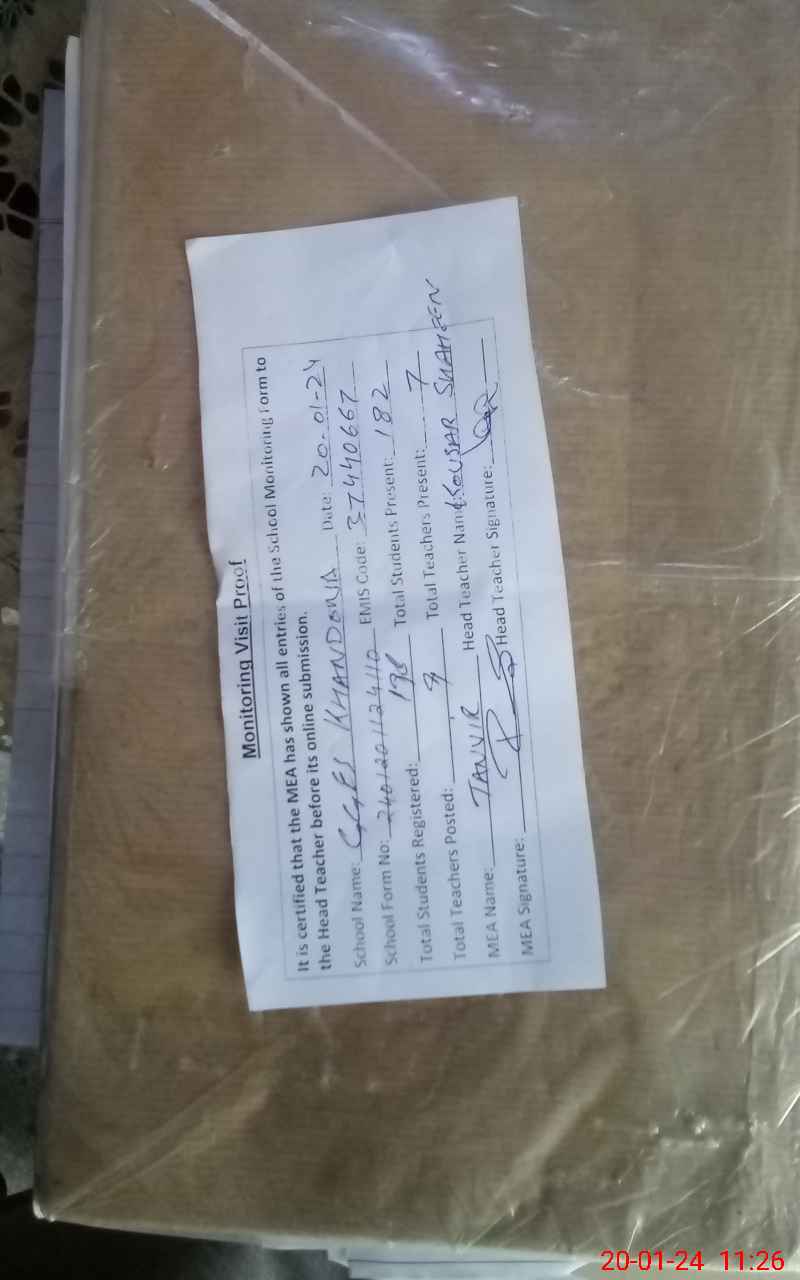 Monitoring Visit Proof
It is certified that the MEA has shown all entries of the School Monitoring Form to
the Head Teacher before its online submission.
School Name: GGES KHANDOWA Date: 20-01-24
School Form No: 2401201124110 EMIS Code: 37440667
Total Students Registered: 198 Total Students Present: 182
Total Teachers Posted: 9 Total Teachers Present: 7
MEA Name: TANVIR Head Teacher Name: KOUSAR SHAHEEN
MEA Signature: Head Teacher Signature:
20-01-24 11:26